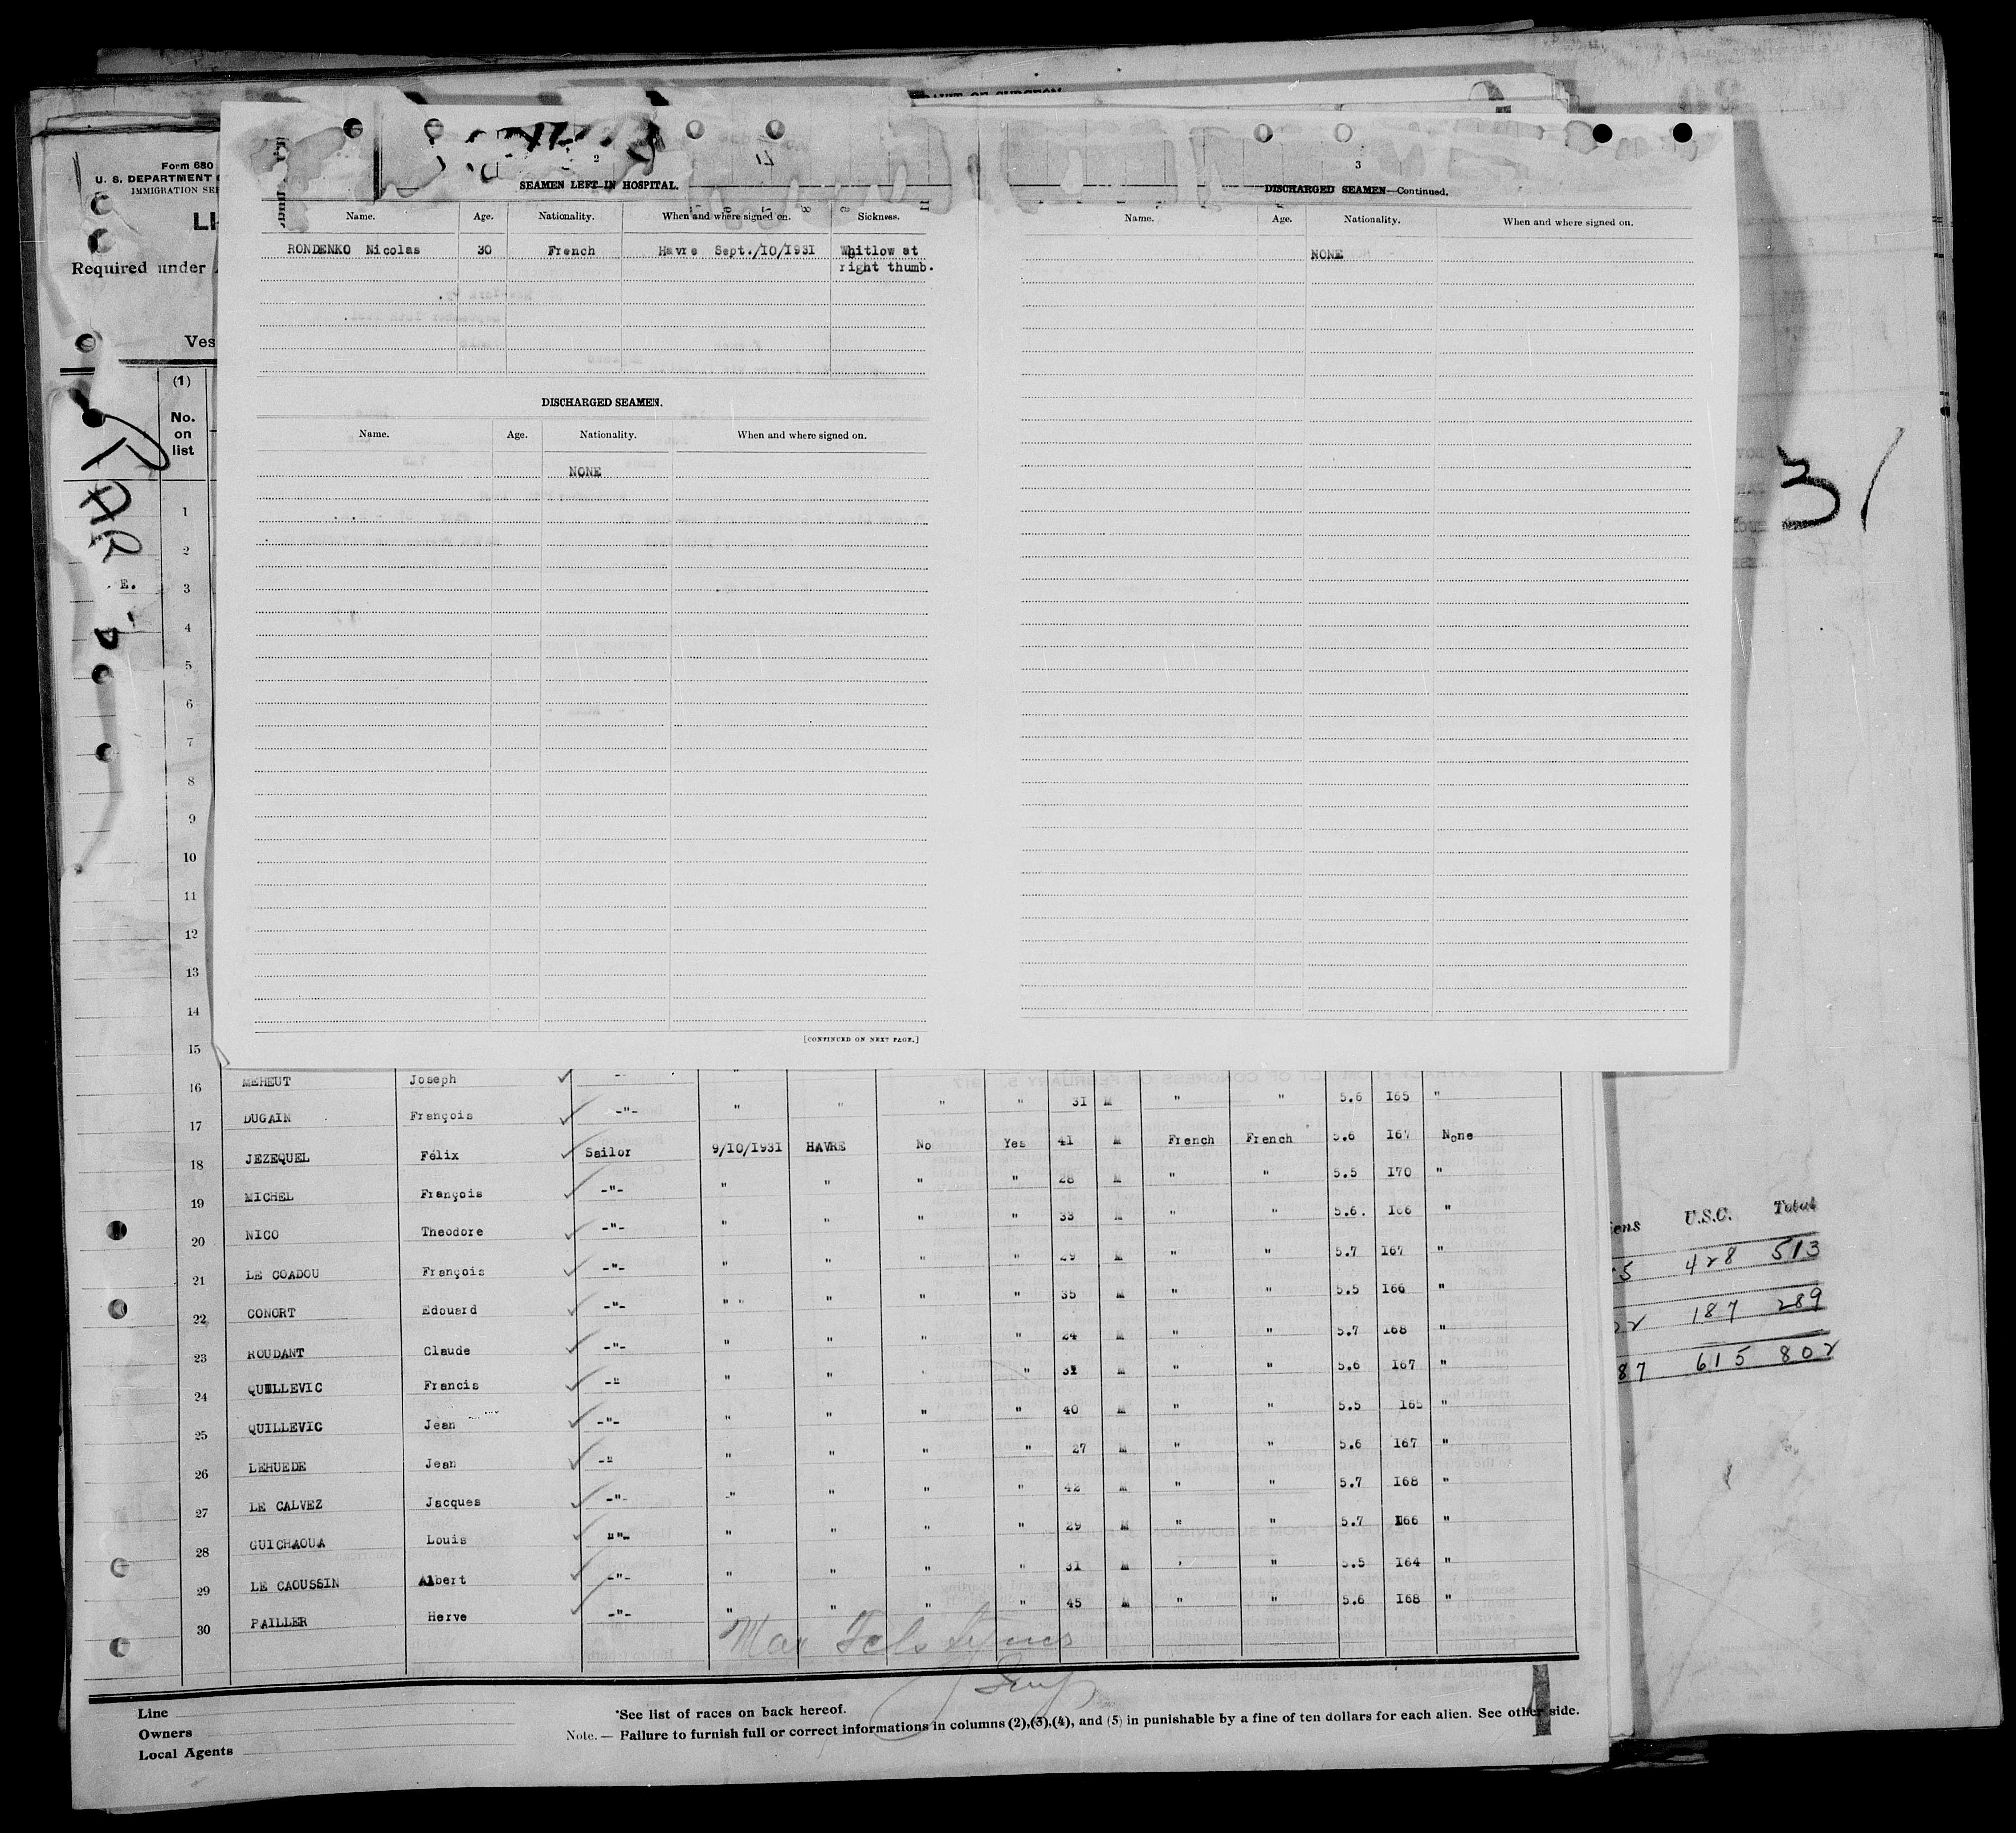 Form 680
U. S. DEPARTMENT
IMMIGRATION SER
LI
Required under
Ves
(1)
No.
on
list
E.
1
2
3
4
5
6
7
8
9
10
11
12
13
14
15
2
SEAMEN LEFT IN HOSPITAL.
Name. Age. Nationality. When and where signed on. Sickness.
RONDENKO Nicolas 30 French Havre Sept./10/1931 Whitlow at
right thumb.
DISCHARGED SEAMEN.
Name. Age. Nationality. When and where signed on.
NONE
[CONTINUED ON NEXT PAGE.]
3
DISCHARGED SEAMEN—Continued.
Name. Age. Nationality. When and where signed on.
NONE
31
16 MEHEUT Joseph -"- "
17 DUGAIN François -"- " " " " 31 M " " 5.6 165 "
18 JEZEQUEL Félix Sailor 9/10/1931 HAVRE No Yes 41 M French French 5.6 167 None
19 MICHEL François -"- " " " " 28 M " " 5.5 170 "
20 NICO Theodore -"- " " " " 33 M " " 5.6. 166 "
21 LE COADOU François -"- " " " " 29 M " " 5.7 167 "
22 CONORT Edouard -"- " " " " " 35 M " " 5.5 166 "
23 ROUDANT Claude -"- " " " " 24 M " " 5.7 168 "
24 QUILLEVIC Francis -" " " " " M " " 5.6 167 "
25 QUILLEVIC Jean -"- " " " " 40 M " " 5.5 165 "
26 LEHUEDE Jean -" " " " " 27 M " " 5.6 167 "
27 LE CALVEZ Jacques -"- -" " " " 42 M " " 5.7 168 "
28 GUICHAOUA Louis "- " " " " 29 M " " 5.7 166 "
29 LE CAOUSSIN Albert -"- " " " " 31 M " " 5.5 164 "
30 PAILLER Herve -"- " " " " 45 M " " 5.6 168 "
iens U.S.C. Total
5 428 513
187 289
87 615 802
Line
Owners
Local Agents
*See list of races on back hereof.
Note. — Failure to furnish full or correct informations in columns (2),(3),(4), and (5) in punishable by a fine of ten dollars for each alien. See other side.